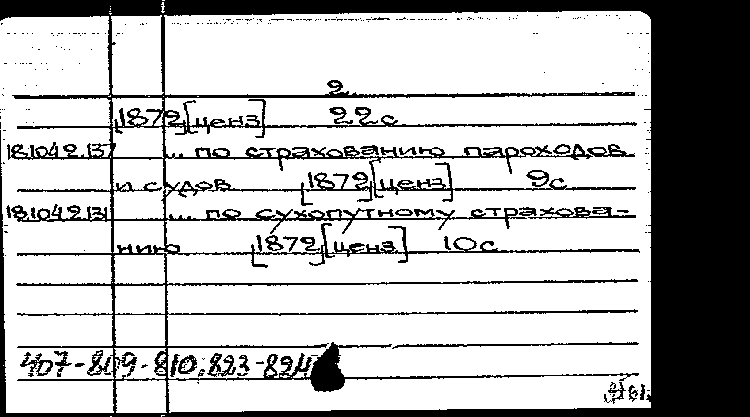 2.
[1872][ценз] 22с
18.104.2.137 ... по страхованию пароходов
и судов [1872][ценз] 9с
18.104.2.131 ... по сухопутному страхова-
нию [1872][ценз] 10с
407-809-810; 823-824